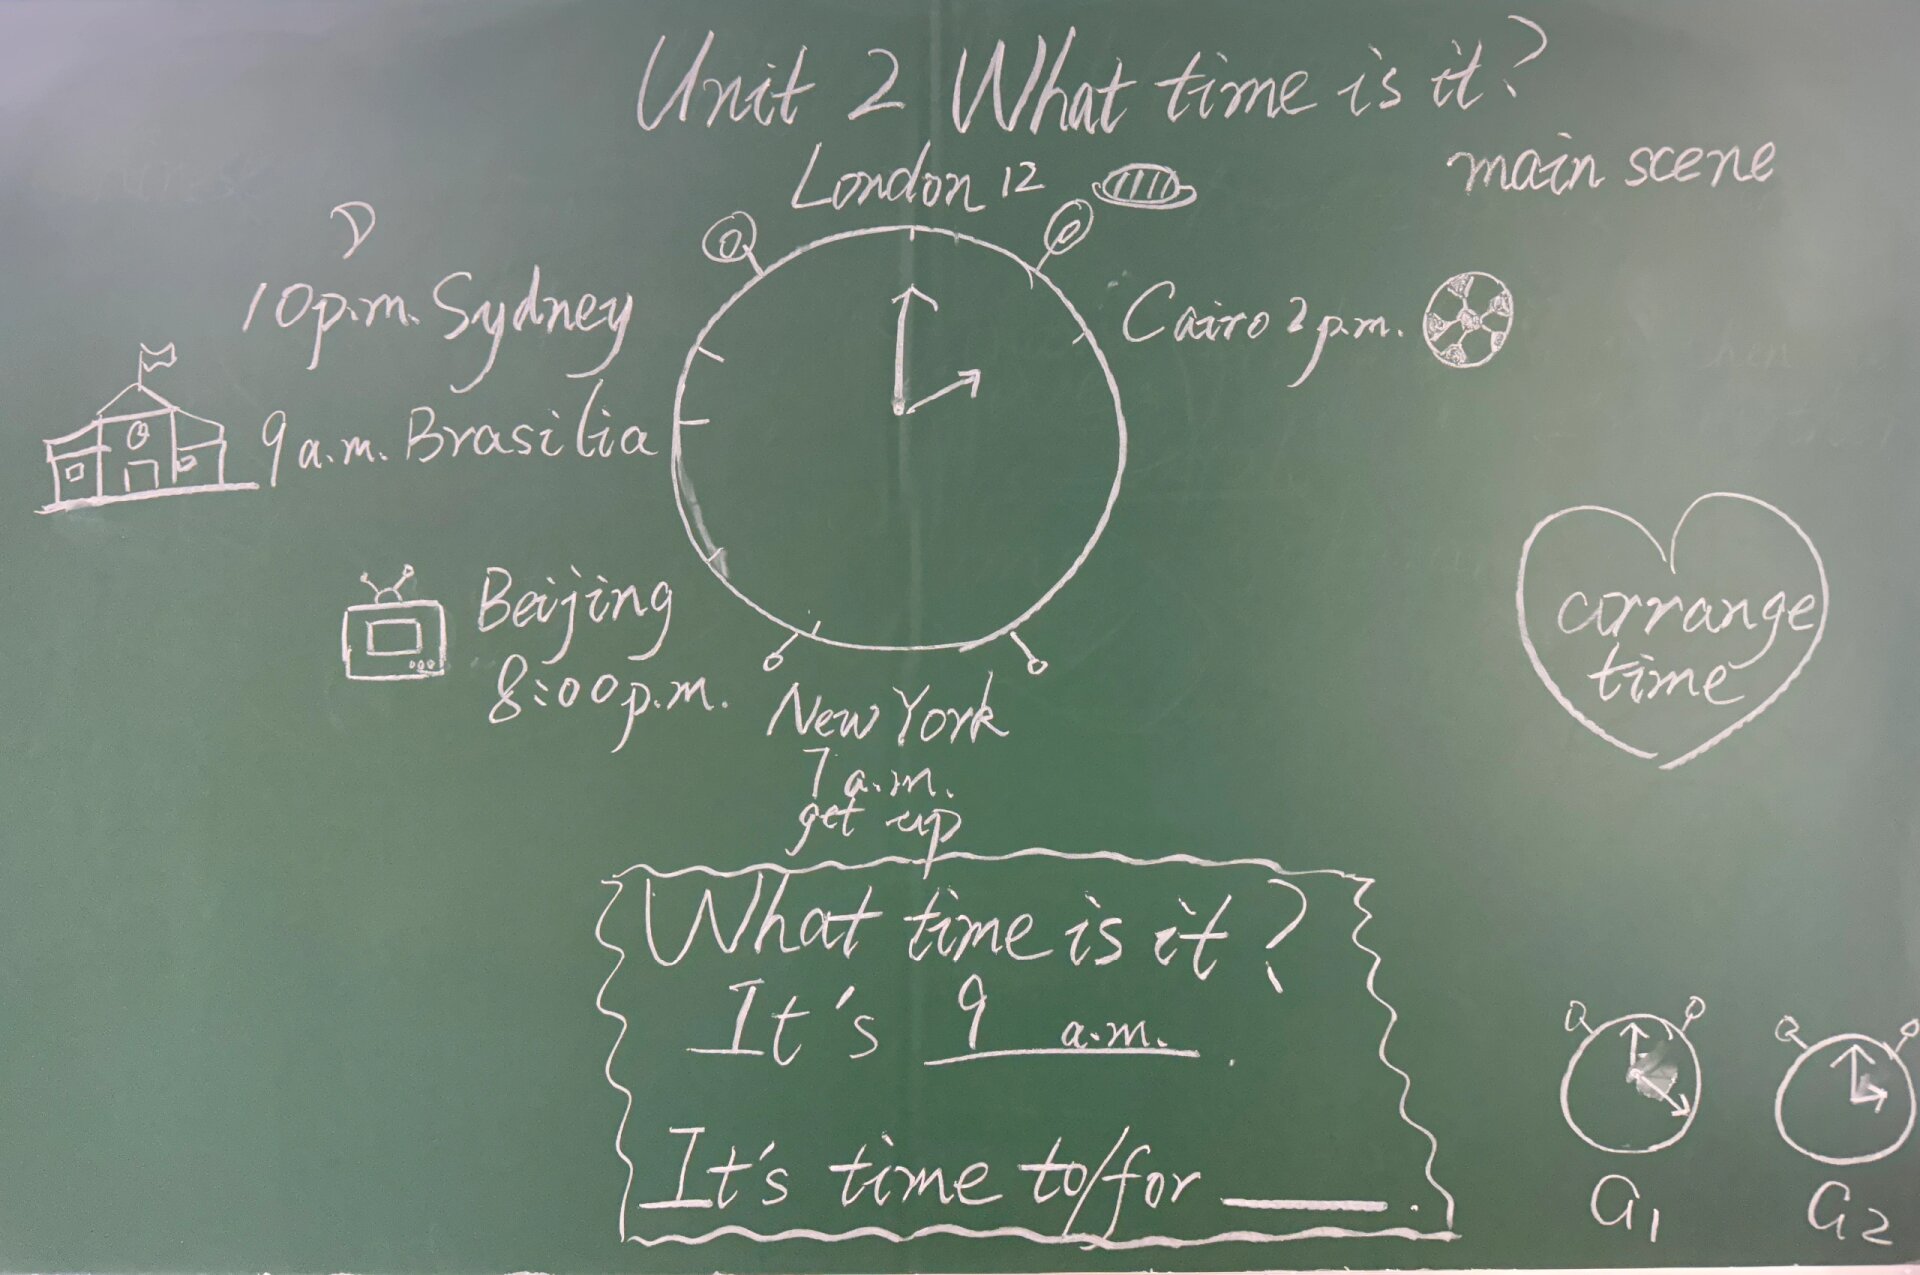 Unit 2 What time is it?
main scene
London 12
10p.m. Sydney
Cairo 2 p.m.
9 a.m. Brasilia
Beijing
8:00 p.m.
New York
7 a.m.
get up
arrange
time
What time is it?
It's 9 a.m.
It's time to/for ____.
G1
G2